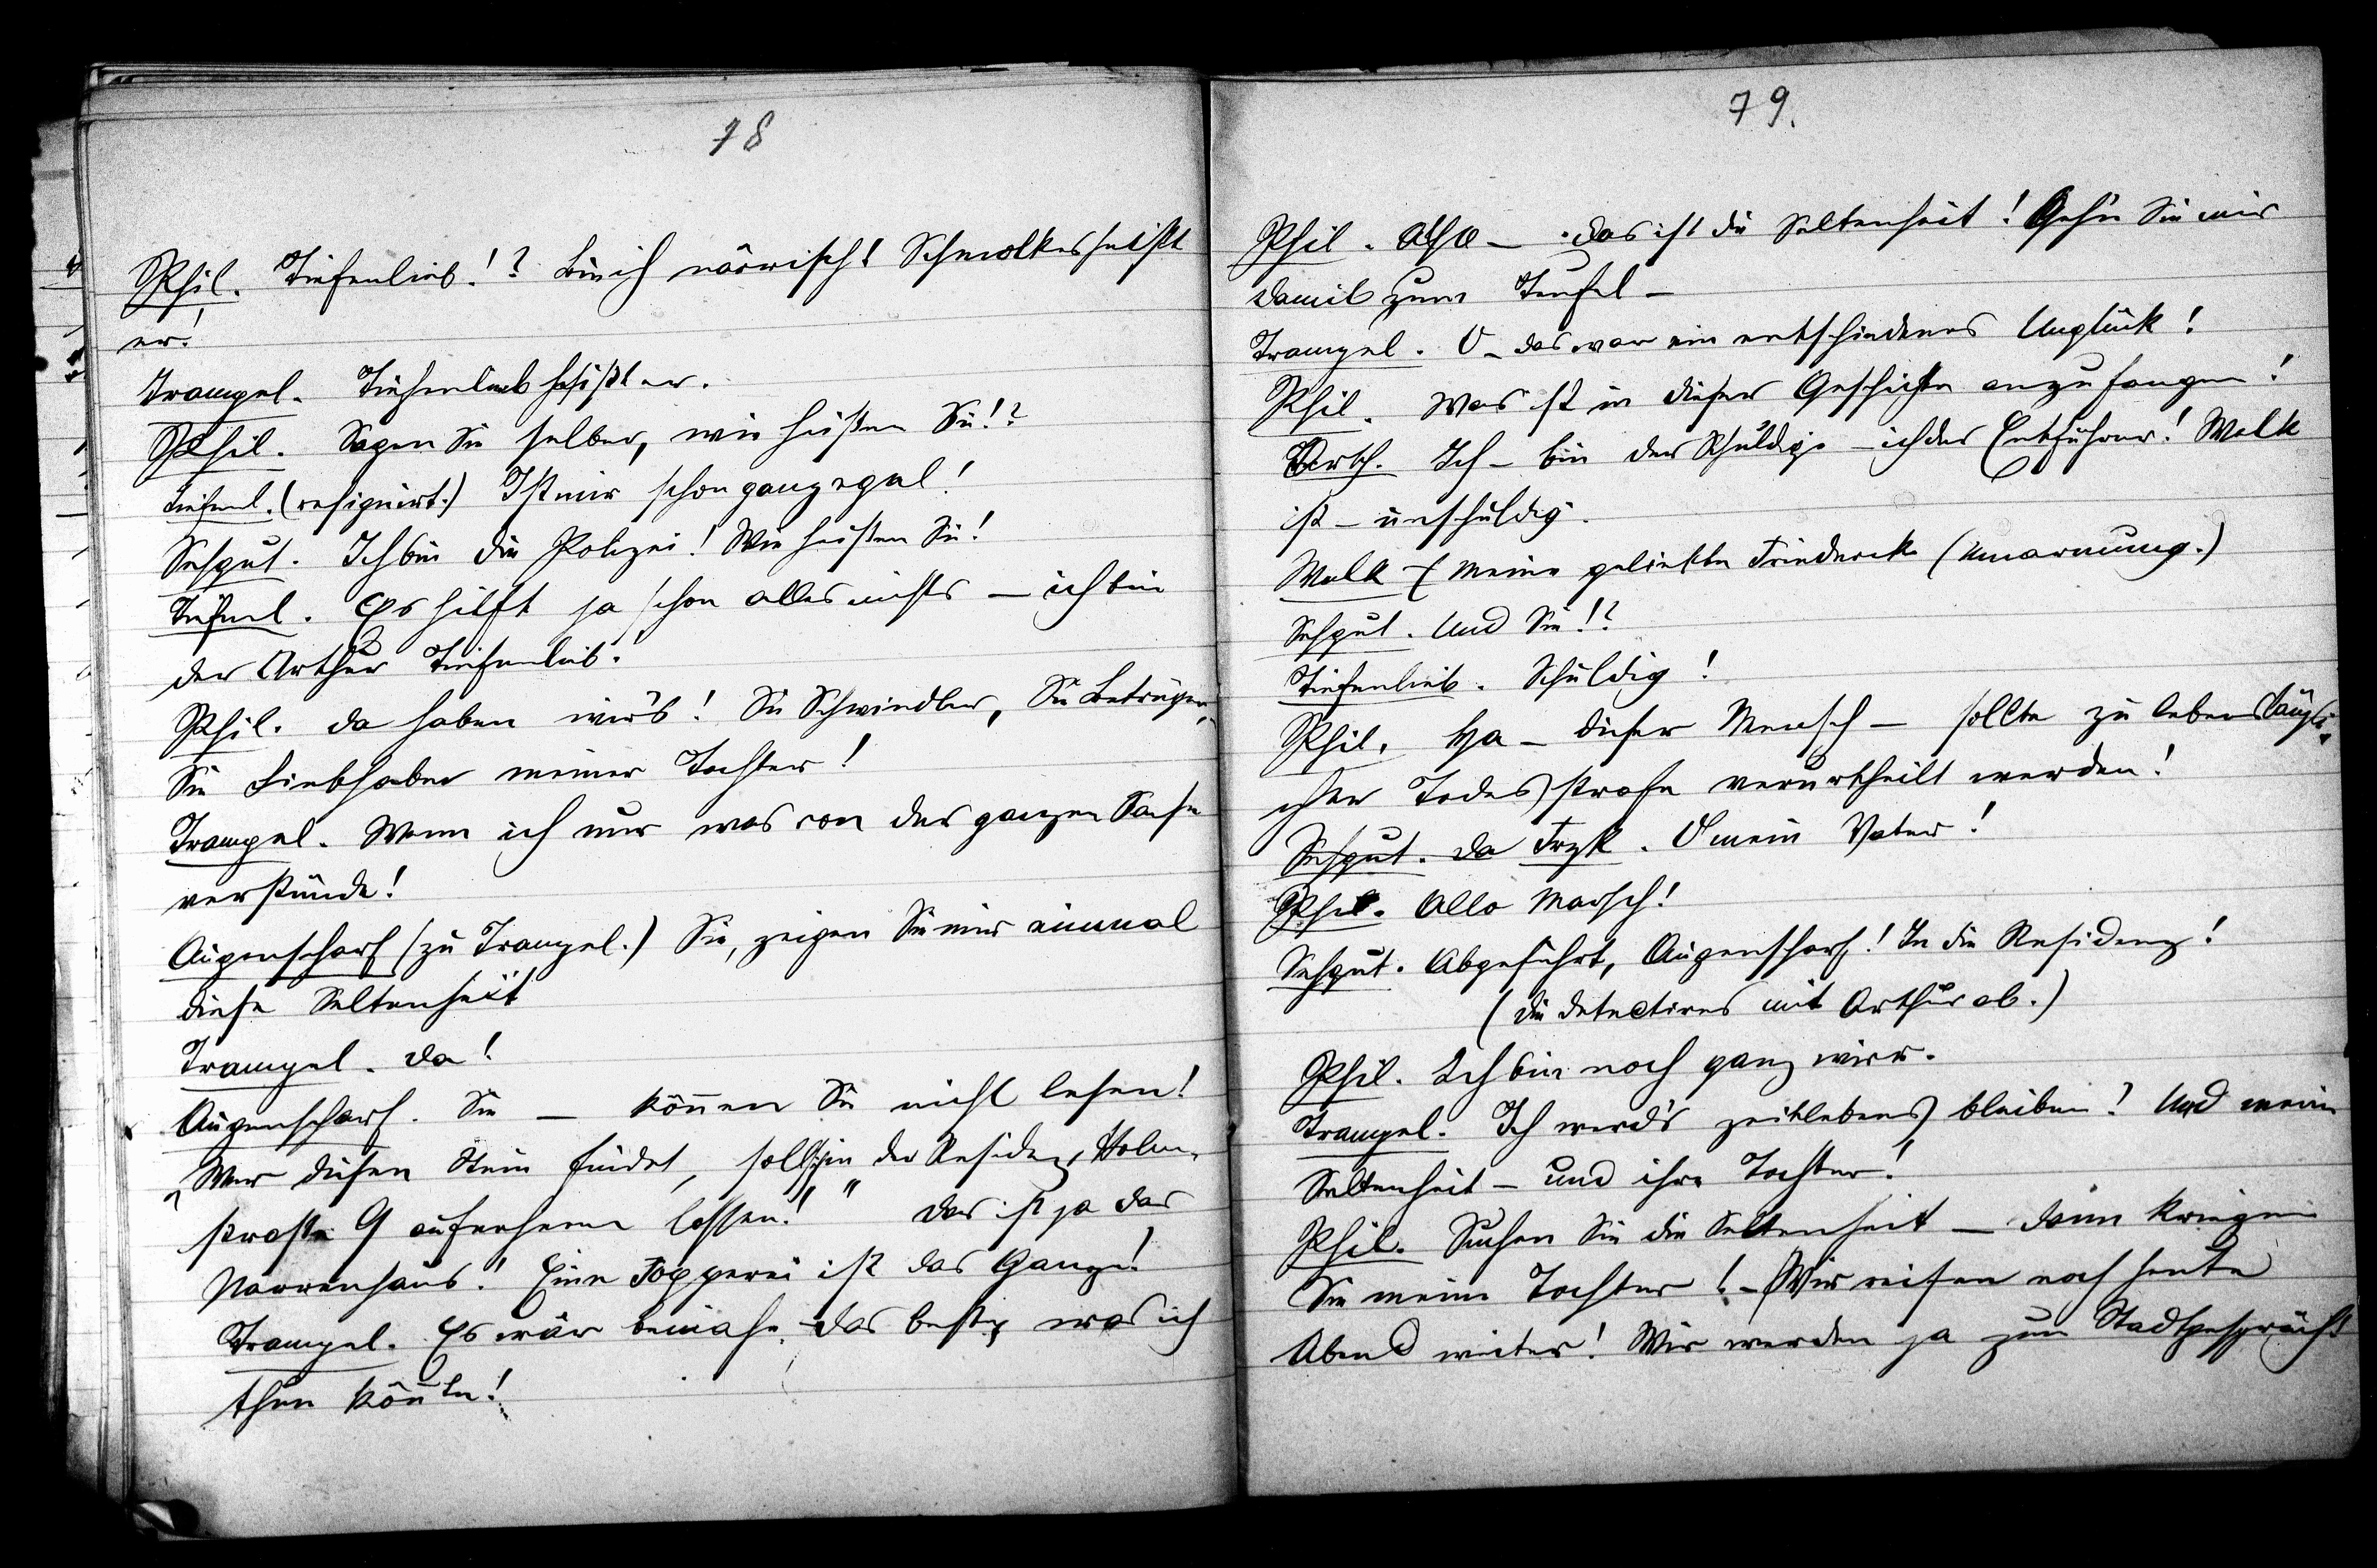 78
Phil. Tiefenlieb!? Bin ich närrisch! Schmolkes heißt
er!
Trampel. Tiefenlieb heißt er.
Phil. Sagen Sie selber, wie heißen Sie!?
Tiefenl. (resignirt.) Ist mir schon ganz egal!
Sehgut. Ich bin die Polizei! Wie heißen Sie!
Tiefenl. Es hilft ja schon alles nichts – ich bin
der Arthur Tiefenlieb!
Phil. Da haben wir's! Sie Schwindler, Sie Betrüger,
Sie Liebhaber meiner Tochter!
Trampel. Wenn ich nur was von der ganzen Sache
verstünde!
Augenscharf (zu Trampel.) Sie, zeigen Sie mir einmal
diese Seltenheit
Trampel. Da!
Augenscharf. Sie – können Sie nicht lesen!
„Wer diesen Stein findet, soll sich in der Residenz, Holm-
straße 9 aufnehmen lassen!" Das ist ja das
Narrenhaus! Eine Fopperei ist das Ganze!
Trampel. Es wär beinahe das beste, was ich
thun könnte!
79.
Phil. Also – das ist die Seltenheit! Gehn Sie mir
damit zum Teufel –
Trampel. O – das war ein entschiedenes Unglück!
Phil. Was ist in dieser Geschichte anzufangen!
Ich – bin der Schuldige – ich der Entführer! Walk
ist – unschuldig.
Walk – Meine geliebte Friederike (Umarmung.)
Sehgut. Und Sie!?
Tiefenlieb. Schuldig!
Phil. Ha – dieser Mensch – sollte zu lebensläng-
cher Todesstrafe verurtheilt werden!
Sehgut. Da Frzk. O mein Vater!
Phil. Allo Marsch!
Sehgut. Abgeführt, Augenscharf! In die Residenz!
(die Detectives mit Arthur ab.)
Phil. Ich bin noch ganz wirr.
Trampel. Ich werd's zeitlebens bleiben! Und meine
Seltenheit – und ihre Tochter!
Phil. Suchen Sie die Seltenheit – dann kriegen
Sie meine Tochter! – Wir reisen noch heute
Abend weiter! Wir werden ja zum Stadtgespräch!